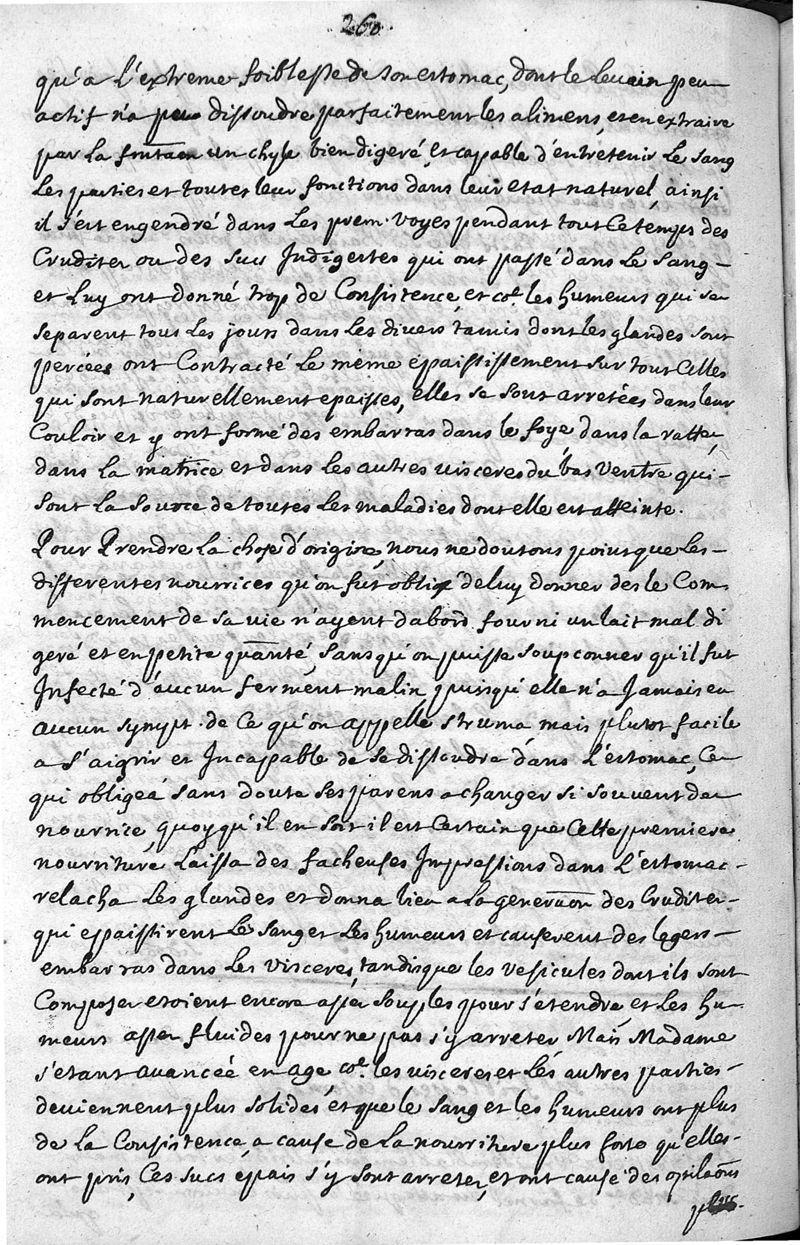 260.
qu'a L'extreme foiblesse de son estomac, dont le Levain peu
actif n'a peu dissoudre parfaitement les alimens, et en extraire
par La un chyle bien digeré, et capable d'entretenir Le sang
Les parties et toutes leur fonctions dans leur etat naturel, ainsi
il s'est engendré dans Les prem. voyes pendant tout Ce temps des
Cruditez ou des sucs Indigestes qui ont passé dans Le sang
et Luy ont donné trop de Consistence, et co.e les humeurs qui se
separent tous Les jours dans Les divers tamis dont les glandes sont
percées ont Contracté Le même epaississement sur tout Celles
qui sont naturellement epaisses, elles se sont arretées dans leur
Couloir et y ont formé des embarras dans le foye dans la ratte,
dans La matrice et dans Les autres visceres du bas Ventre qui
sont La source de toutes Les maladies dont elle est atteinte.
Pour Prendre La chose d'origine, nous ne doutons point que Les
differentes nourrices qu'on fut oblig.é de luy donner des le Com
mencement de sa vie n'ayent d'abord fourni un lait mal di
geré et en petite quantité, sans qu'on puisse soupconner qu'il fut
Infecté d'aucun ferment malin, puisqu'elle n'a Jamais eu
aucun sympt. de Ce qu'on appelle struma, mais plutot facile
a s'aigrir et Incapable de se dissoudre dans L'estomac, Ce
qui obligea sans doute ses parens a changer si souvent de
nourrice, quoy qu'il en soit il est Certain que Cette premiere
nourriture Laissa des facheuses Impressions dans L'estomac
relacha Les glandes et donna lieu a La genera͞on des Cruditez
qui epaissirent Le sang et Les humeurs et causerent des legers
embarras dans Les visceres, tandisque les vesicules dont ils sont
Composez etoient encore assez souples pour s'etendre, et Les hu
meurs assez fluides pour ne pas s'y arreter, Mais Madame
s'etant avancée en age co.e les visceres et Les autres parties
deviennent plus solides et que le sang et les humeurs ont plus
de La Consistence, a cause de La nourriture plus forte qu'elles
ont pris, Ces sucs epais s'y sont arretez, et ont causé des opila͞ons
plus